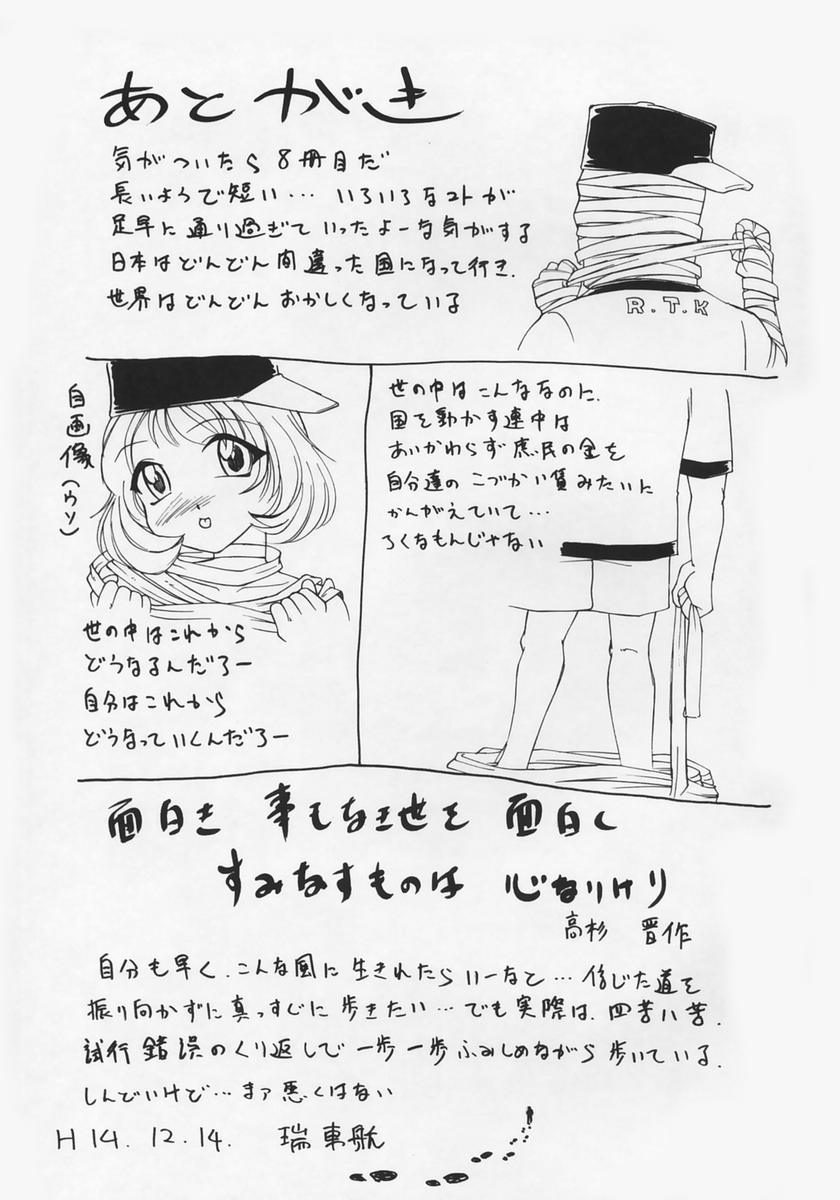 あとがき
気がついたら8冊目だ
長いようで短い… いろいろなコトが
足早に通り過ぎていったよーな気がする
日本はどんどん間違った国になって行き、
世界はどんどんおかしくなっている
R.T.K
自画像(ウソ)
世の中はこれから
どうなるんだろー
自分はこれから
どうなっていくんだろー
世の中はこんななのに、
国を動かす連中は
あいかわらず庶民の金を
自分達のこづかい賃みたいに
かんがえていて…
ろくなもんじゃない
面白き 事もなき世を 面白く
すみなすものは 心なりけり
高杉 晋作
自分も早く、こんな風に生きれたらいーなと… 信じた道を
振り向かずに真っすじに歩きたい… でも実際は、四苦八苦、
試行錯誤のくり返しで一歩一歩ふみしめながら歩いている。
しんどいけど… まァ悪くはない
H14.12.14. 瑞車航